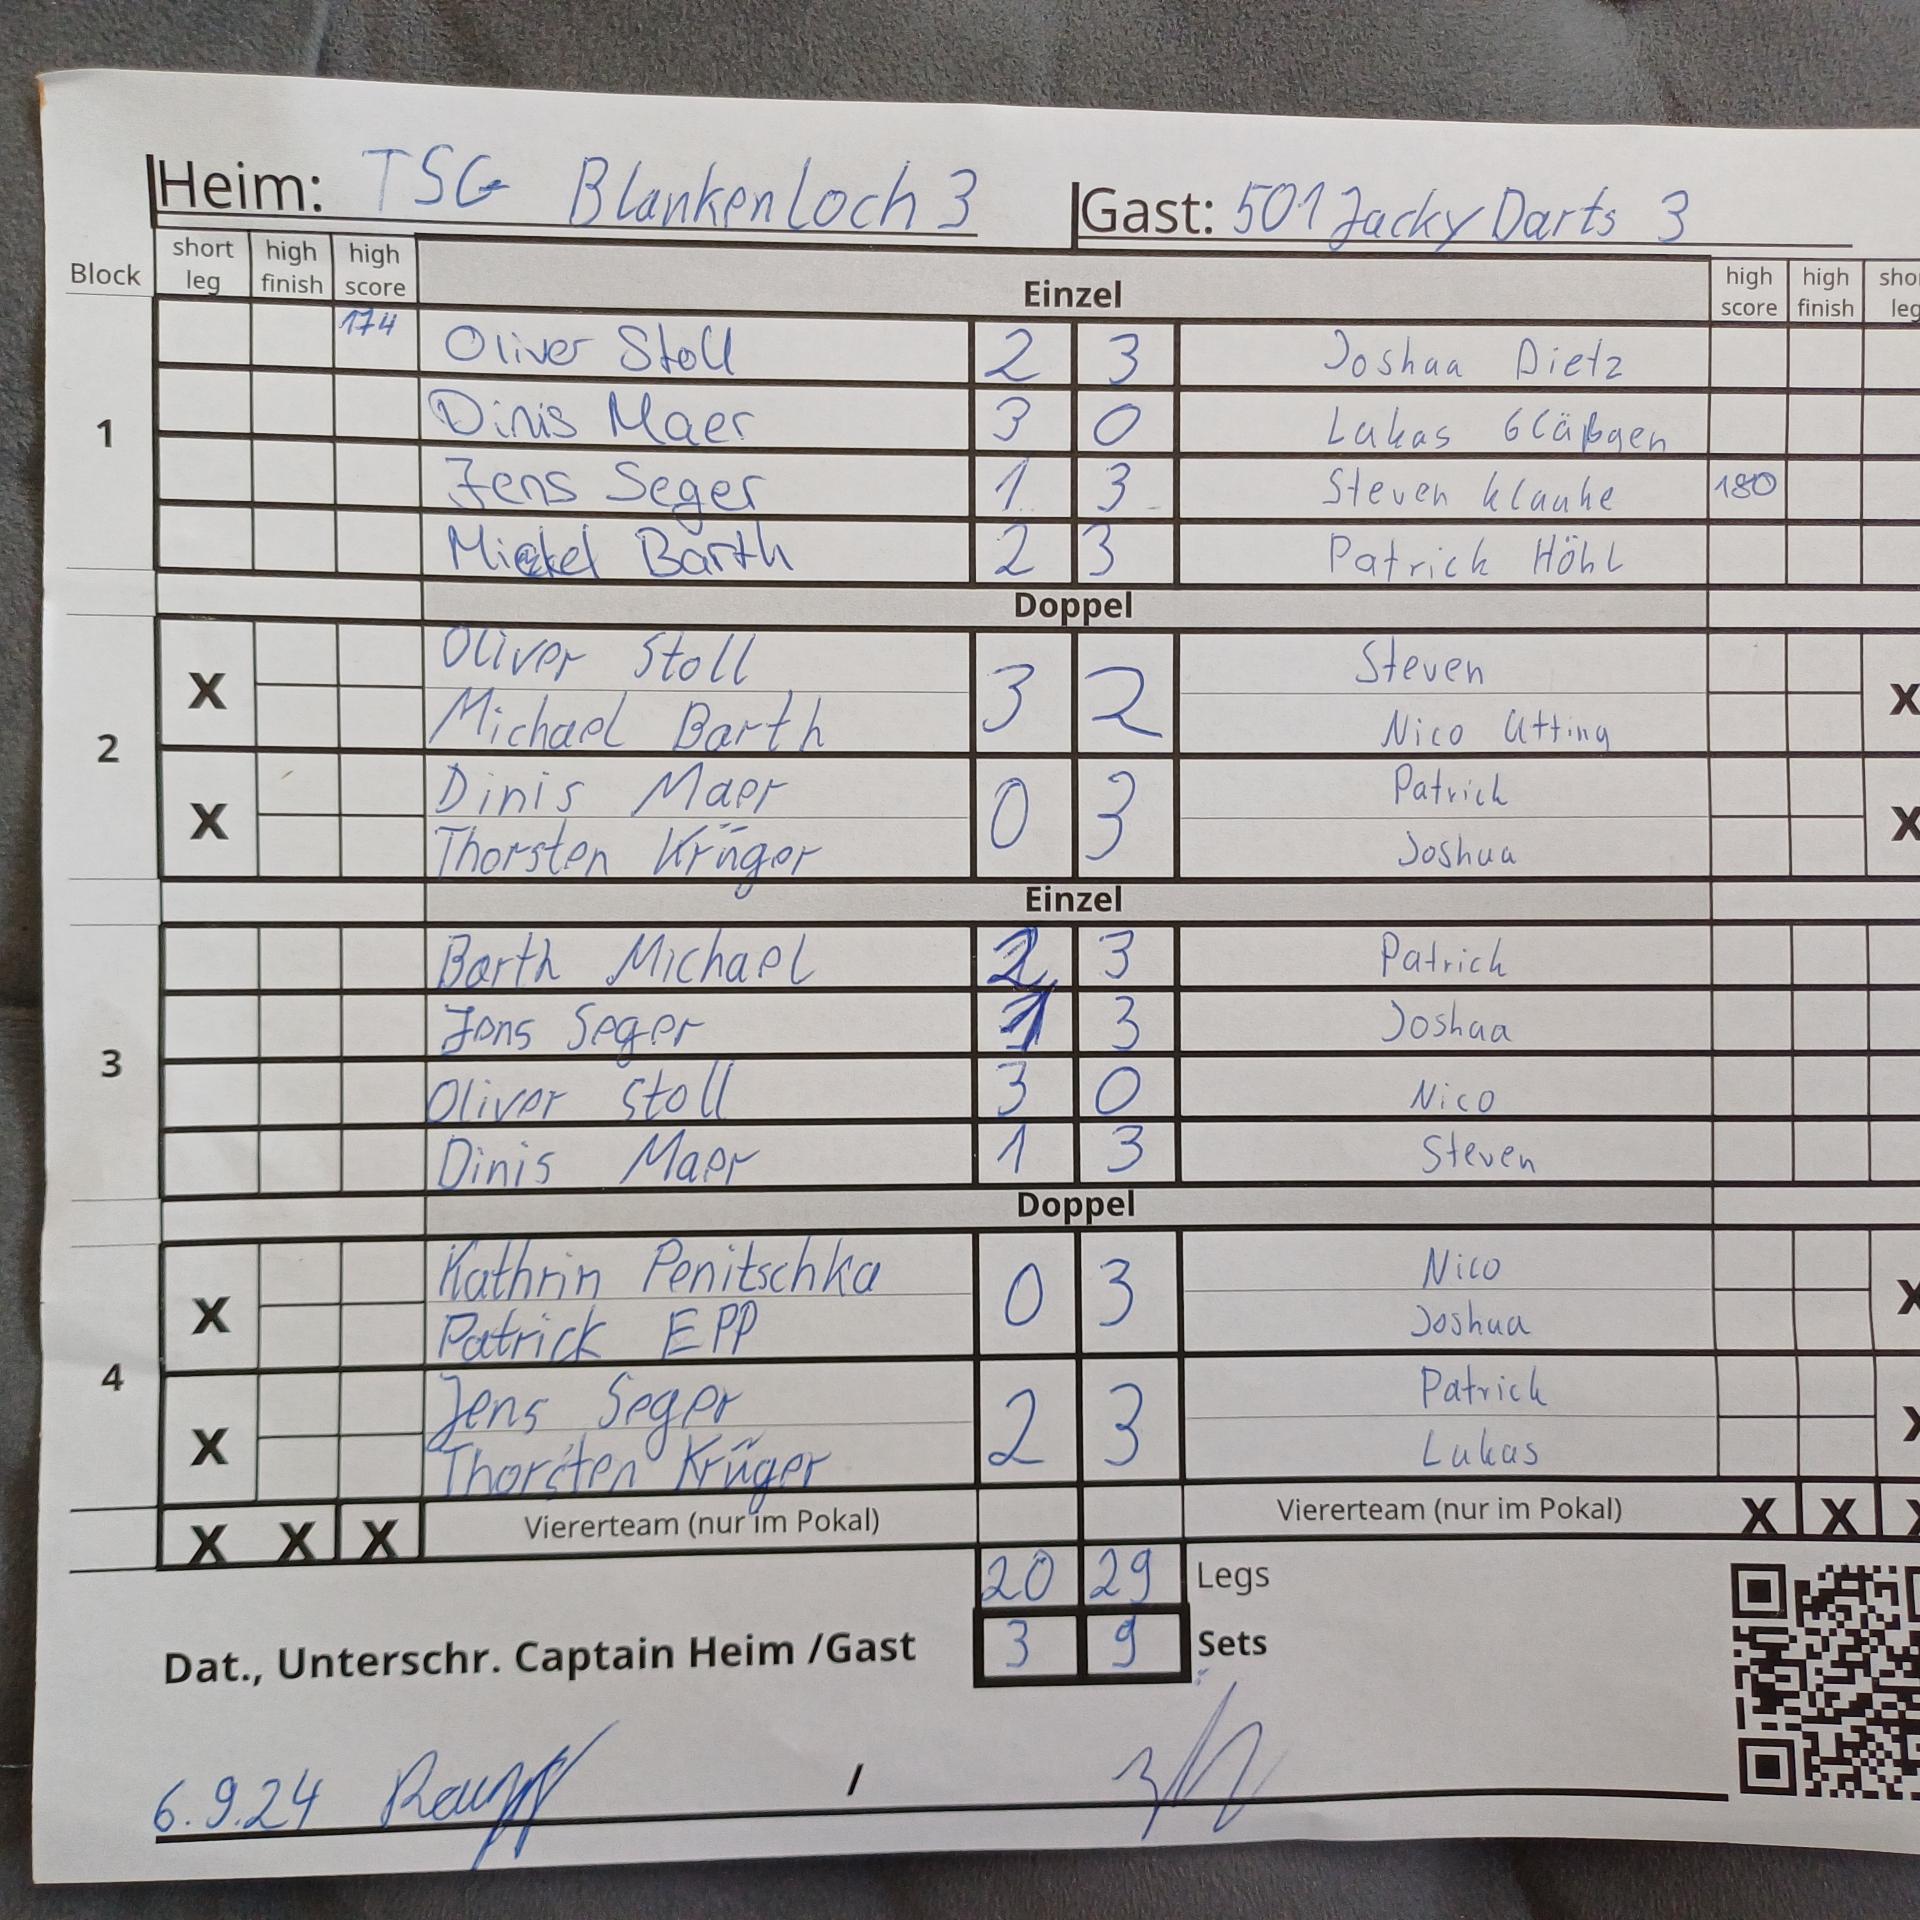 Heim: TSG Blankenloch 3 Gast: 501 Jacky Darts 3
Block short leg high finish high score Einzel high score high finish short leg
1
174 Oliver Stoll 2 3 Joshua Dietz
Dinis Maer 3 0 Lukas Gläßgen
Jens Seger 1 3 Steven Klauke 180
Barth 2 3 Patrick Höhl
Doppel
2
X Oliver Stoll 3 2 Steven X
Michael Barth Nico Utting
X Dinis Maer 0 3 Patrick X
Thorsten Krüger Joshua
Einzel
3
Barth Michael 2 3 Patrick
Jens Seger 1 3 Joshua
Oliver Stoll 3 0 Nico
Dinis Maer 1 3 Steven
Doppel
4
X Kathrin Penitschka 0 3 Nico X
Patrick EPP Joshua
X Jens Seger 2 3 Patrick X
Thorsten Krüger Lukas
X X X Viererteam (nur im Pokal) Viererteam (nur im Pokal) X X X
20 29 Legs
Dat., Unterschr. Captain Heim /Gast 3 9 Sets
6.9.24 /